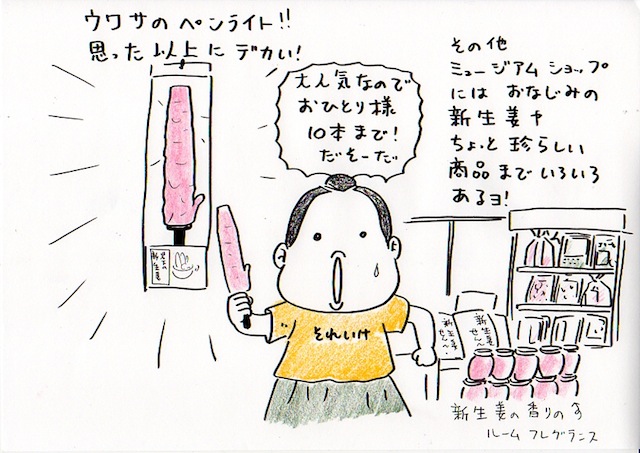 ウワサのペンライト!!
思った以上にデカい!
大人気なので
おひとり様
10本まで!
だそーだ
その他
ミュージアムショップ
にはおなじみの
新生姜や
ちょっと珍らしい
商品までいろいろ
あるヨ!
岩下の
新生姜
それいけ
新生姜
せんべい
新生姜
せんべい
新生姜の香りの
ルームフレグランス